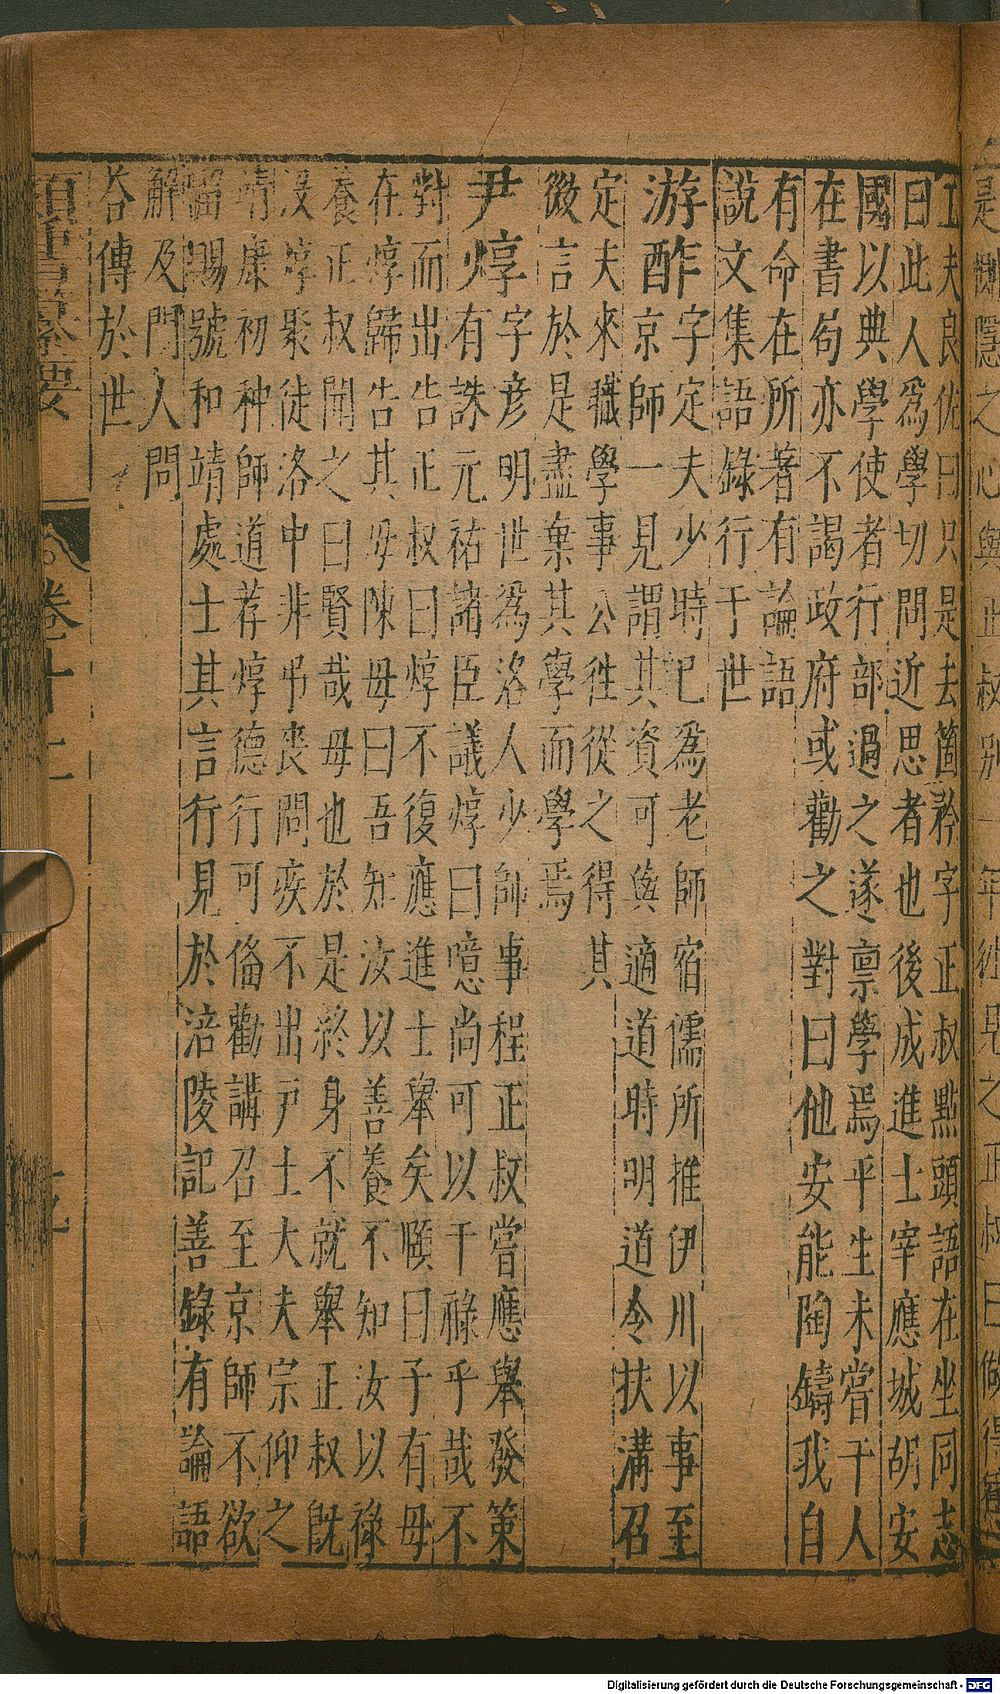 工夫良佐曰只是去箇矜字正叔點頭語在坐同志
曰此人爲學切問近思者也後成進士宰應城胡安
國以典學使者行部過之遂禀學焉平生未嘗干人
在書局亦不謁政府或勸之對曰他安能陶鑄我自
有命在所著有論語
說文集語錄行于世
游酢字定夫少時已爲老師宿儒所推伊川以事至
京師一見謂其資可與適道時明道令扶溝召
定夫來職學事公徃從之得其
微言於是盡棄其學而學焉
尹焞字彦明世爲洛人少師事程正叔嘗應舉發策
有誅元祐諸臣議焞曰噫尚可以干祿乎哉不
對而出告正叔曰焞不復應進士舉矣頤曰子有母
在焞歸告其母陳母曰吾知汝以善養不知汝以祿
養正叔聞之曰賢哉母也於是終身不就舉正叔旣
没焞聚徒洛中非弔丧問疾不出戸士大夫宗仰之
靖康初种師道荐焞德行可俻勸講召至京師不欲
留賜號和靖處士其言行見於涪陵記善錄有論語
解及門人問
荅傳於世
類書纂要
卷十二
是惻隱之心與正叔別一年徃見之正叔曰做得
Digitalisierung gefördert durch die Deutsche Forschungsgemeinschaft - DFG